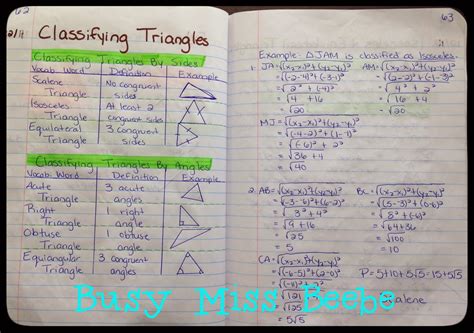 62
2/11 Classifying Triangles
Classifying Triangles By Sides
Vocab Word Definition Example
Scalene Triangle No congruent sides
Isosceles Triangle At least 2 congruent sides
Equilateral Triangle 3 congruent sides
Classifying Triangles By Angles
Vocab Word Definition Example
Acute Triangle 3 acute angles
Right Triangle 1 right angle
Obtuse Triangle 1 obtuse angle
Equiangular Triangle 3 congruent angles
63
Example: △JAM is classified as Isosceles.
1. JA=√(x₂-x₁)²+(y₂-y₁)² AM=√(x₂-x₁)²+(y₂-y₁)²
=√4 +16 =√16 +4
=√20 =√20
MJ=√(x₂-x₁)²+(y₂-y₁)²
=√(-6)² + 2²
=√36 +4
=√40
2. AB=√(x₂-x₁)²+(y₂-y₁)² BC=√(x₂-x₁)²+(y₂-y₁)²
=√(-3--6)²+(6-2)² =√(5--3)²+(0-6)²
=√3² + 4² =√8² +(-6)²
=√9 +16 =√64+36
=√25 =√100
=5 =10
CA=√(x₂-x₁)²+(y₂-y₁)²
=√(-6-5)²+(2-0)²
=√(-11)² +(2)² P=5+10+5√5=15+5√5
=√121 Scalene
=√125
=5√5
Busy Miss Beebe